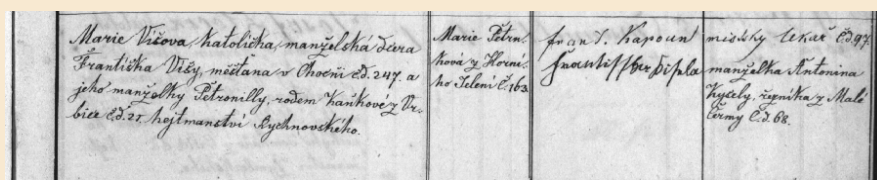 Marie Víšova, katolička, manželská dcera
Františka Víšy, měšťana v Chocni č.d. 247. a
jeho manželky Petronilly, rodem Kaňkové z Vr-
bice č.d. 27. hejtmanství Rychnovského.
Marie Petrn-
ková z Horní-
ho Jelení č. 163
Frant. Karoun
Frantiss
místský lékař č.d. 97.
manželka Antonina
Kysely, řezníka z Malé
Čermy č.d. 68.